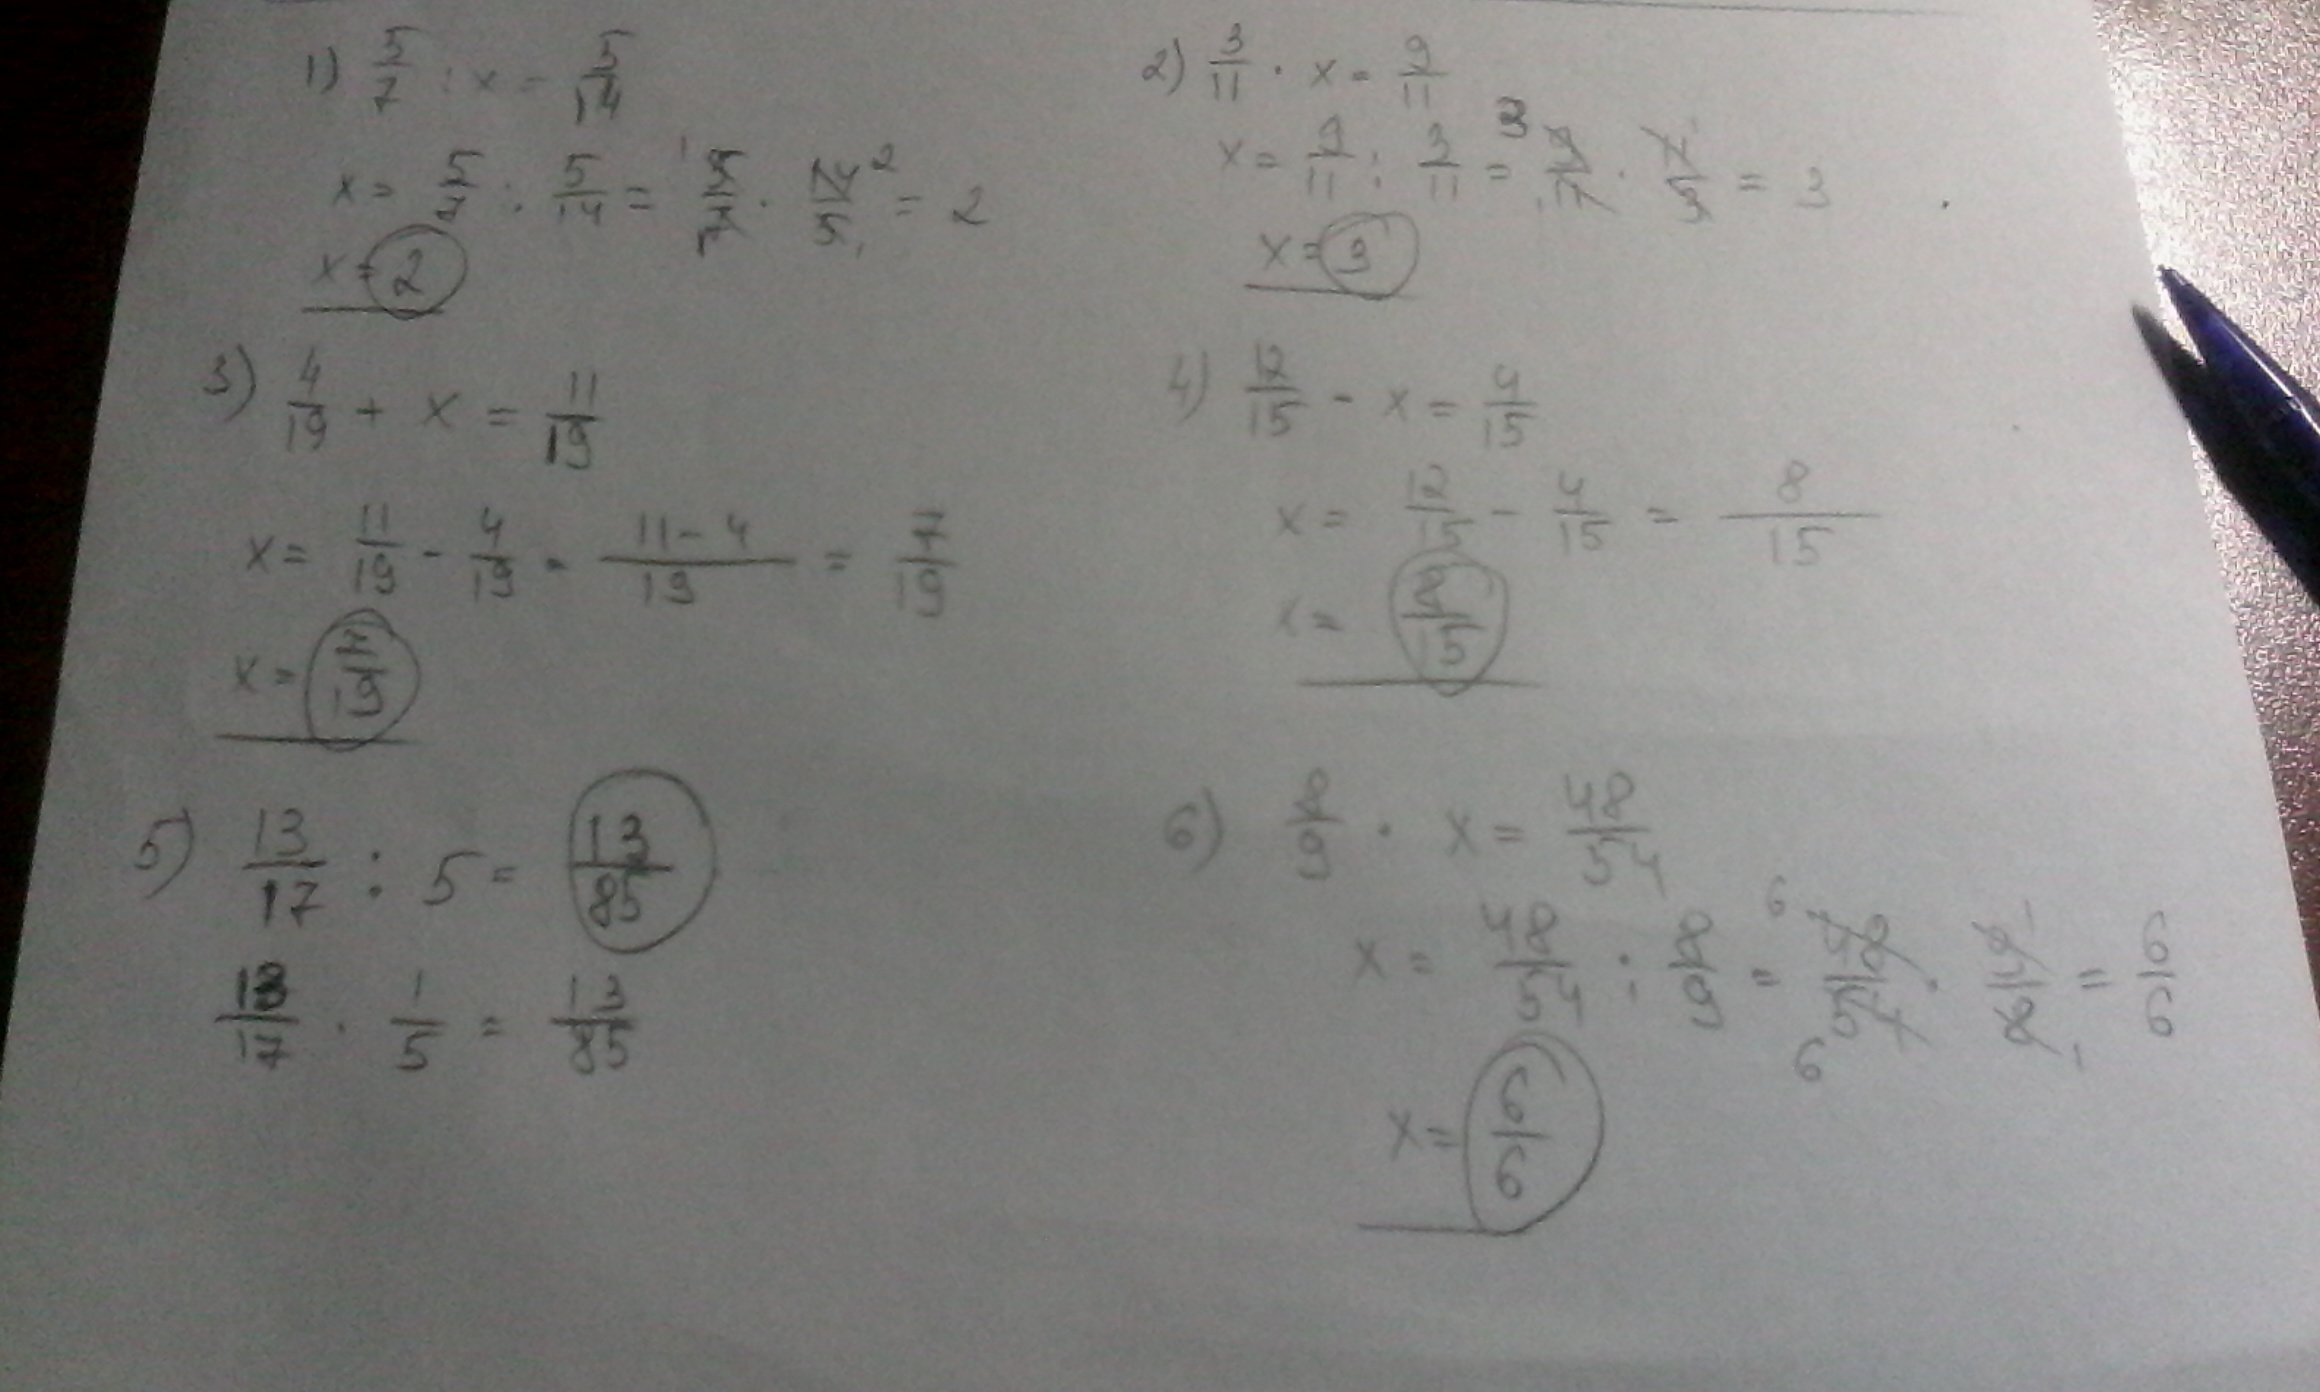 1) 5/7 : x = 5/14
x = 5/7 : 5/14 = 5/7 · 14/5 = 2
x = 2
2) 3/11 · x = 9/11
x = 9/11 : 3/11 = 9/11 · 11/3 = 3
x = 3
3) 4/19 + x = 11/19
x = 11/19 - 4/19 = 11-4/19 = 7/19
x = 7/19
4) 12/15 - x = 4/15
x = 12/15 - 4/15 = 8/15
x = 8/15
5) 13/17 : 5 = 13/85
13/17 · 1/5 = 13/85
6) 8/9 · x = 48/54
x = 48/54 : 8/9 = 48/54 · 9/8 = 6/6
x = 6/6